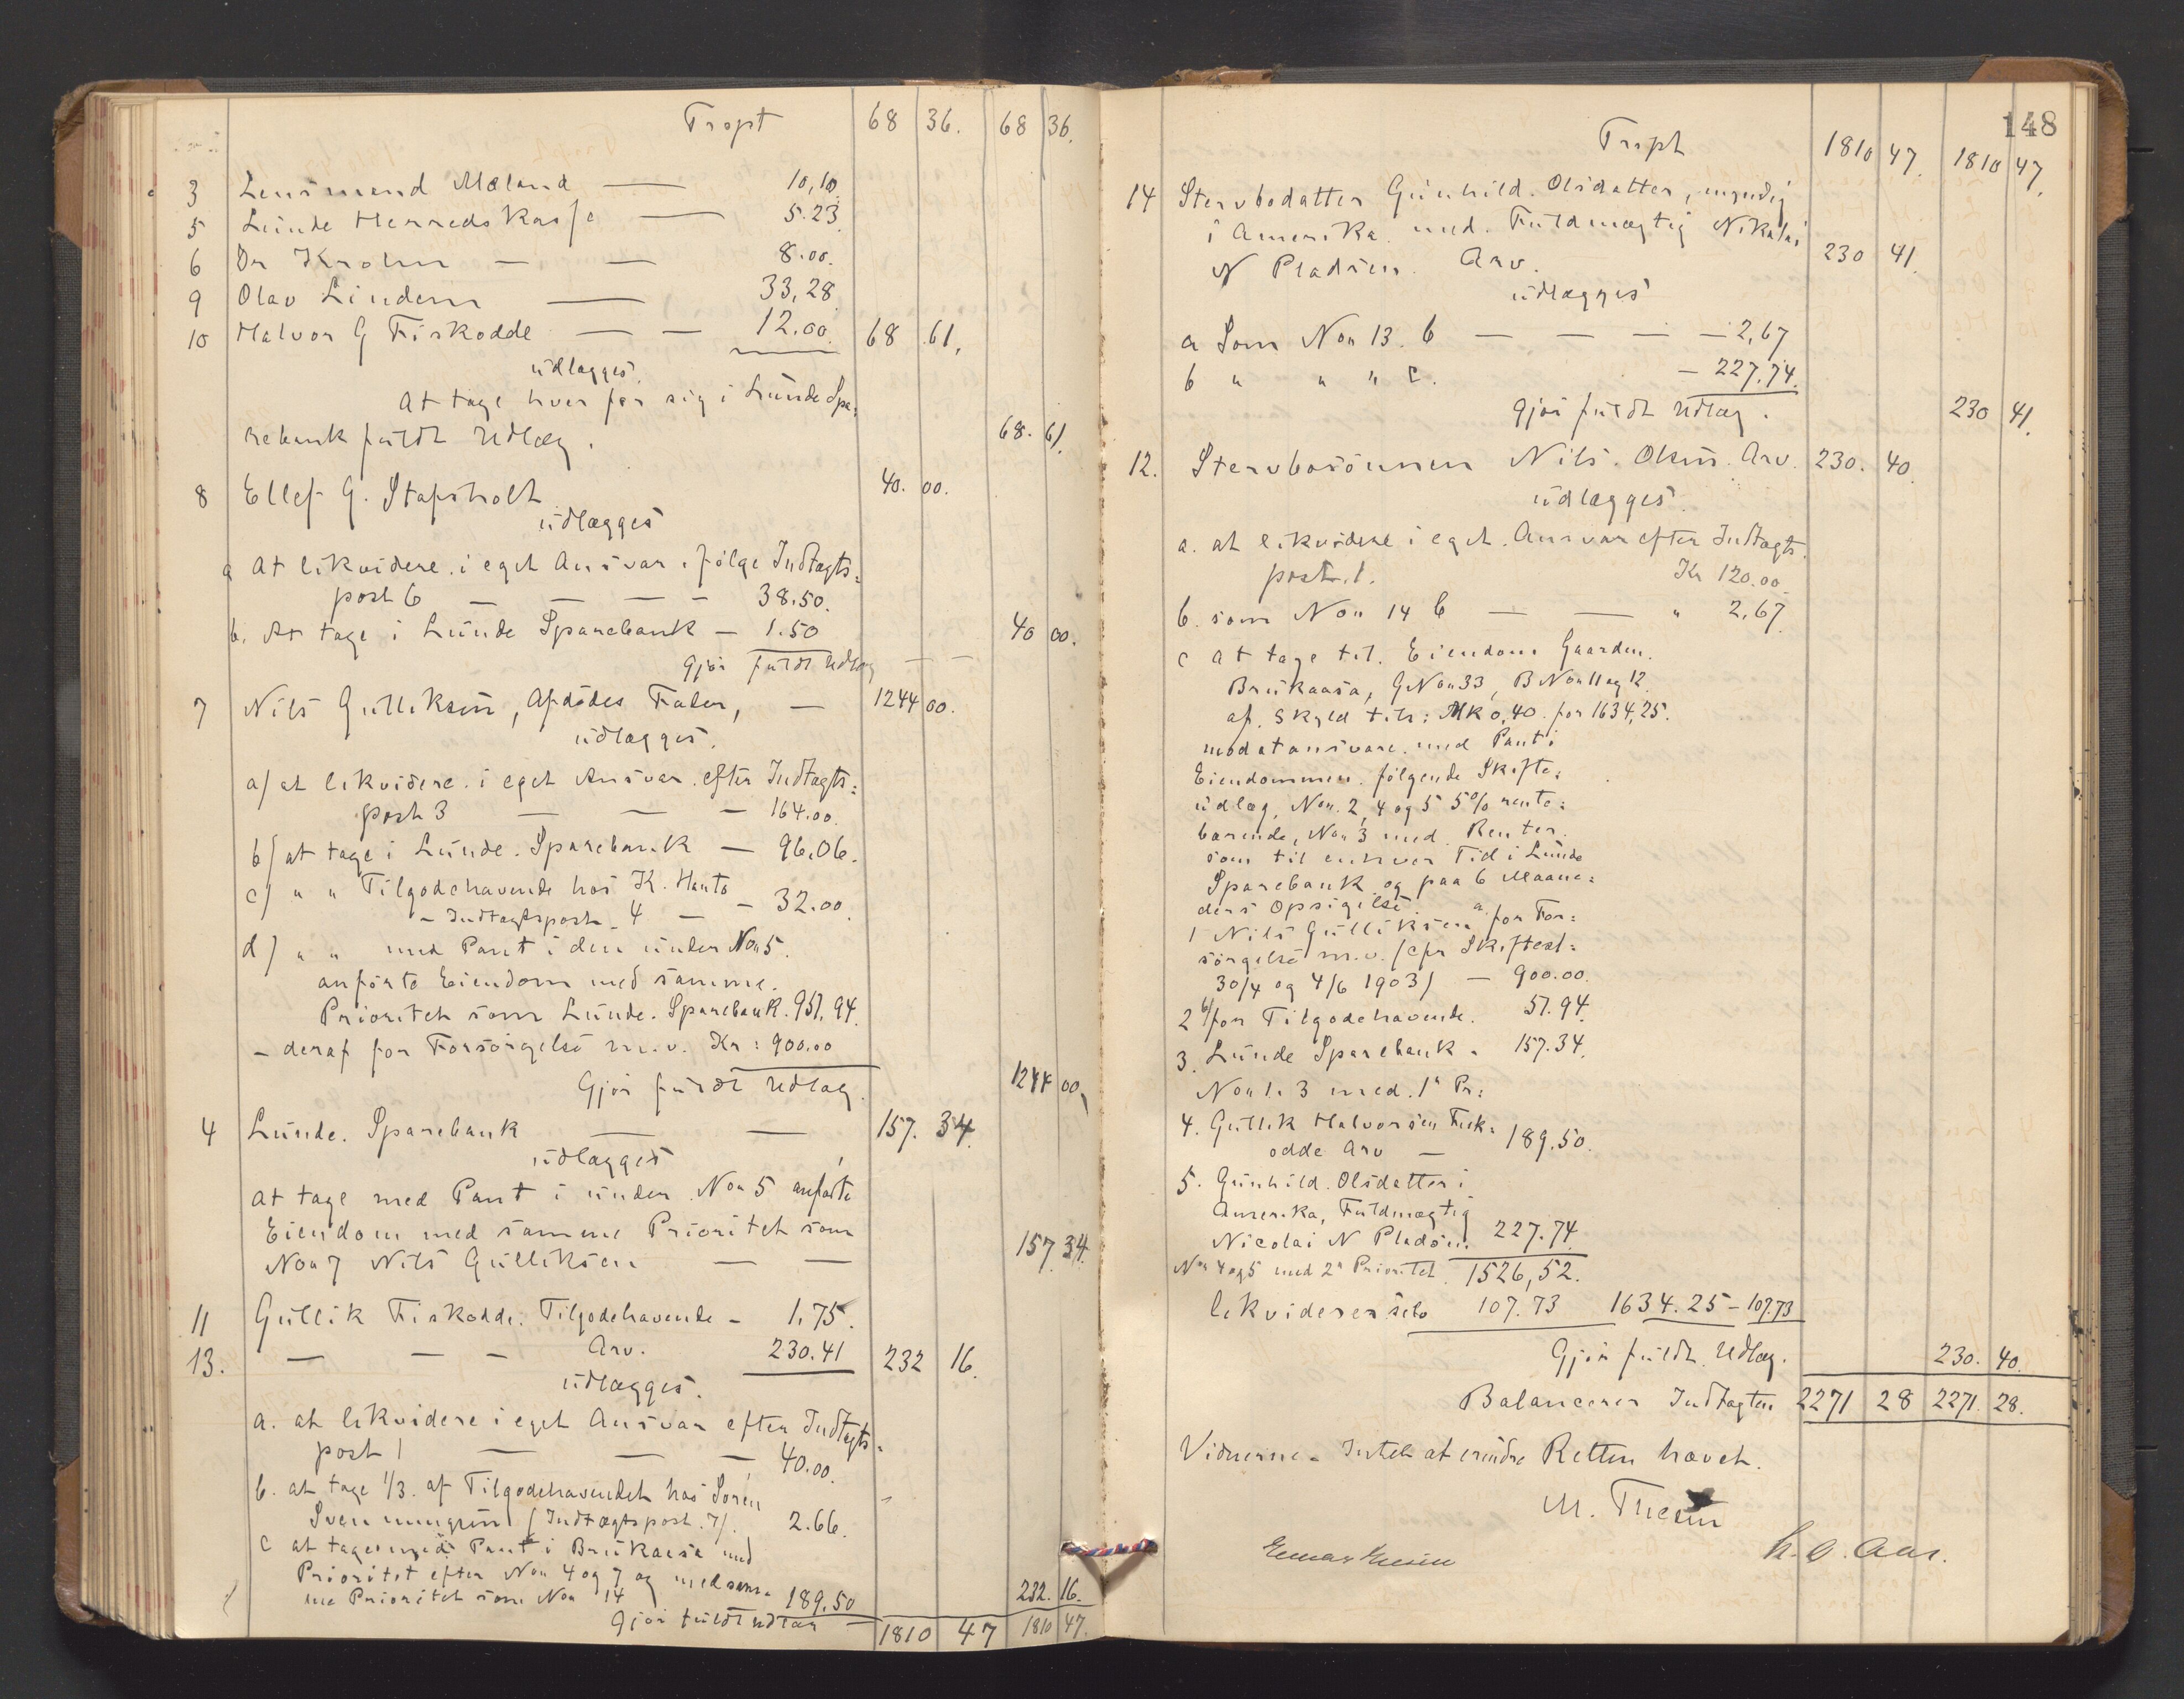 Trspt 68 36. 68 36.
3 Lensmand Mæland — 10,10
5 Lunde Herredskasse — 5.23
6 Dr Krohn — — 8.00.
9 Olav Lindem — 33,28
10 Halvor G Fiskodde — — 12.00. 68 61.
udlægges.
At tage hver for sig i Lunde Spa:
rebank fuldt Udlæg. 68. 61.
8 Ellef G. Stafsholt 40. 00.
udlægges
a At likvidere i eget Ansvar ifølge Indtægts:
post 6 — — — — 38.50.
b. At tage i Lunde Sparebank — 1.50 40 00.
Gjør fuldt Udlæg — —
7 Nils Gulliksen, Afdødes Fader, — 1244 00.
udlægges.
a) at likvidere i eget Ansvar efter Indtægts:
post 3 — — — 164.00.
b) at tage i Lunde Sparebank — 96.06.
c) " " Tilgodehavende hos K. Hauto
- Indtægtspost 4 — — 32.00.
d) " " med Pant i den under Non 5.
anførte Eiendom med samme.
Prioritet som Lunde. Sparebank. 951.94.
- deraf for Forsørgelse m.v. Kr: 900.00
Gjør fuldt Udlæg. 1244 00.
4 Lunde. Sparebank — — 157. 34.
udlægges
at tage med Pant i under Non 5 anførte
Eiendom med samme Prioritet som
Non 7 Nils Gulliksen — — 157. 34.
11 Gullik Fiskodde. Tilgodehavende - 1.75.
13. — — — Arv. 230.41 232 16.
udlægges.
a. at likvidere i eget Ansvar efter Indtægts:
post 1 — — — 40.00.
b. at tage 1/3. af Tilgodehavendet hos Søren
(Indtægtspost. 7). 2.66.
c at tages med Pant i Brukaasa med
Prioritet efter Non 4 og 7 og med sam-
me Prioritet som Non 14 189.50 232. 16.
Gjør fuldt Udlæg — 1810 47 1810 47.
148
Trspt 1810 47. 1810 47.
14 Stervbodatter Gunhild. Olsdatter, myndig
i Amerika med. Fuldmægtig Nikolai
N Pladsen. Arv. 230 41.
udlægges
a Som Non 13. b — — — — 2,67
b " " " c. — 227.74.
Gjør fuldt Udlæg. 230 41.
12. Stervbosønnen Nils. Olsen. Arv. 230. 40.
udlægges.
a. at likvidere i eget. Ansvar efter Indtægts.
post. 1. Kr 120.00
b. som Non 14 b — — " 2,67
c at tage til. Eiendom Gaarden.
Brukaasa, GNon 33, BNon 11 og 12.
af. Skyld tils: Mk 0,40. for 1634,25.
mod at ansvare med Pant i
Eiendommen. følgende Skifte:
udlæg, Non. 2, 4 og 5 5% rente:
bærende, Non 3 med Renter.
som til enhver Tid i Lunde
Sparebank og paa 6 Maane:
ders Opsigelse.
1 Nils Gulliksen a. for For:
sørgelse m.v. (cfr Skiftesl:
30/4 og 4/6 1903) — 900.00.
2 b/for Tilgodehavende. 51.94.
3. Lunde Sparebank - 157.34.
Non 1. 3 med. 1ste Pr:
4. Gullik Halvorsen Fisk:
odde Arv — 189.50.
5. Gunhild. Olsdatter i
Amerika, Fuldmægtig
Nicolai N Pladsen. 227.74.
Non 4 og 5 med 2den Prioritet. 1526,52.
likviderer selv 107.73 1634.25 — 107.73
Gjør fuldt. Udlæg. 230. 40.
Balancerer Indtægten 2271 28 2271. 28.
Vidnerne - Intet at erindre Retten hævet.
M. Thesen
H. O. Aas.